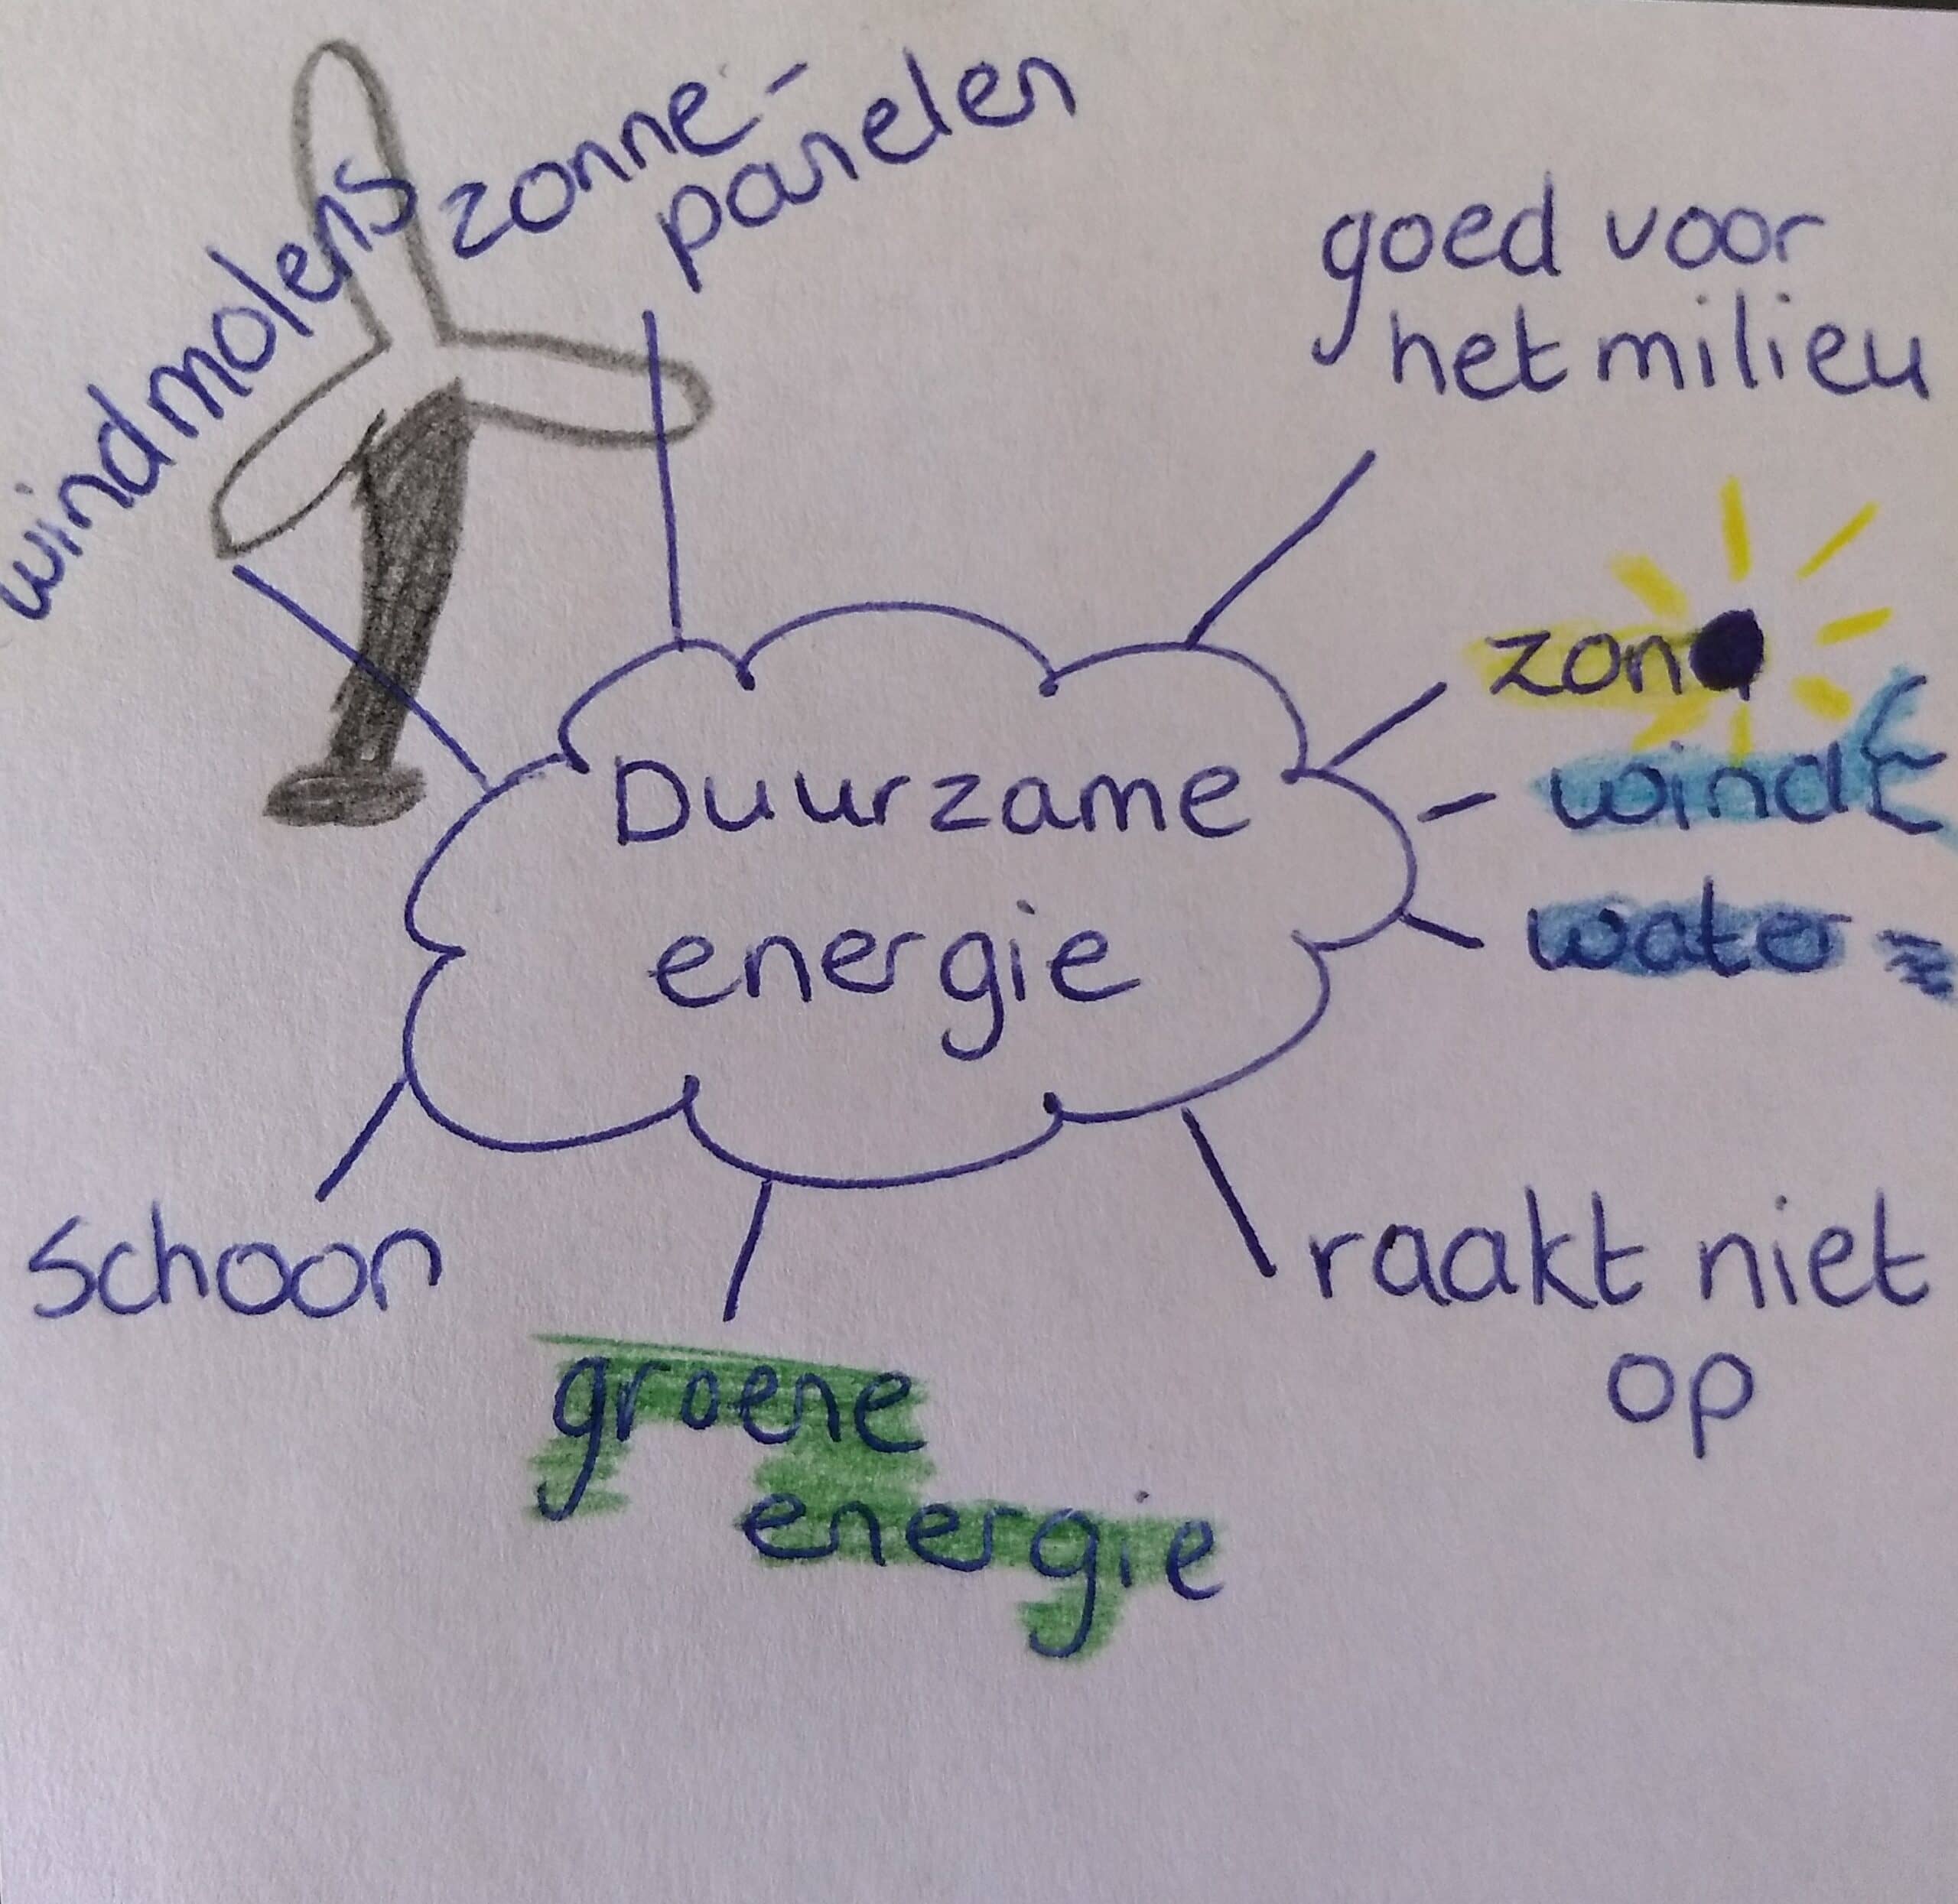 windmolens
zonne-
panelen
goed voor
het milieu
zon
wind
water
Duurzame
energie
schoon
groene
energie
raakt niet
op